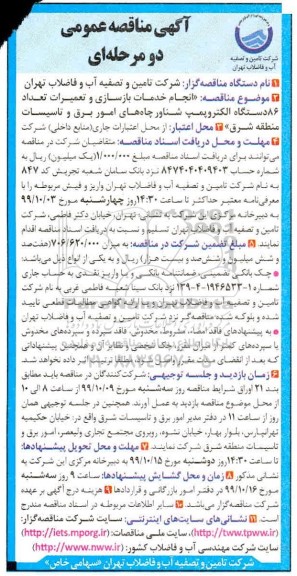 آگهی مناقصه عمومی
دو مرحله‌ای
شرکت تامین و تصفیه
آب و فاضلاب تهران
۱ نام دستگاه مناقصه‌گزار: شرکت تامین و تصفیه آب و فاضلاب تهران
۲ موضوع مناقصه: «انجام خدمات بازسازی و تعمیرات تعداد
۸۶دستگاه الکتروپمپ شناور چاه‌های امور برق و تاسیسات
منطقه شرق» ۳ محل اعتبار: از محل اعتبارات جاری(منابع داخلی) شرکت
۴ مهلت و محل دریافت اسناد مناقصه: متقاضیان شرکت در مناقصه
می‌توانند برای دریافت اسناد مناقصه مبلغ ۱/۰۰۰/۰۰۰(یک میلیون) ریال به
شماره حساب ۸۴۷۴۰۴۰۴۰۹۴۰۳ نزد بانک سامان شعبه تجریش کد ۸۴۷
به نام شرکت تامین و تصفیه آب و فاضلاب تهران واریز و فیش مربوطه را با
معرفی‌نامه معتبر حداکثر تا ساعت ۱۴:۳۰روز چهارشنبه مورخ ۹۹/۱۰/۰۳
به دبیرخانه مرکزی این شرکت به نشانی: تهران، خیابان دکتر فاطمی، شرکت
تامین و تصفیه آب و فاضلاب تهران تسلیم و نسبت به دریافت اسناد مناقصه اقدام
نمایند. ۵ مبلغ تضمین شرکت در مناقصه: به میزان ۷۰۶/۶۲۰/۰۰۰(هفتصد
و شش میلیون و ششصد و بیست هزار) ریال و به یکی از انواع ذیل می‌باشد:
چک بانکی تضمینی، ضمانتنامه بانکی و یا واریز نقدی به حساب جاری
شماره ۱-۱۹۴۶۵۳۳-۴-۱۳۹ نزد بانک سینا شعبه فاطمی غربی به نام شرکت
تامین و تصفیه آب و فاضلاب تهران و یا ارائه گواهی مطالبات قطعی تایید
شده و بلوکه شده مناقصه‌گر نزد شرکت تامین و تصفیه آب و فاضلاب تهران
به پیشنهادهای فاقد امضا، مشروط، مخدوش، فاقد سپرده و سپرده‌های مخدوش
یا سپرده‌های کمتر از میزان مقرر، چک شخصی و نظایر آن و همچنین پیشنهادهای
که بعد از انقضای مدت مقرر واصل گردد، مطلقا ترتیب اثر داده نخواهد شد.
۶ زمان بازدید و جلسه توجیهی: شرکت‌کنندگان در مناقصه باید مطابق
بند ۲۱ اوراق شرایط مناقصه روز سه‌شنبه مورخ ۹۹/۱۰/۰۹ از ساعت ۸ الی ۱۰
از محل موضوع مناقصه بازدید به عمل آورند. همچنین در جلسه توجیهی همان
روز از ساعت ۱۱ در دفتر مدیر امور برق و تاسیسات شرق واقع در: خیابان حکیمیه
تهرانپارس، بلوار بهار، خیابان نشوه، روبروی مجتمع تجاری ولیعصر، امور برق و
تاسیسات منطقه شرق شرکت نمایند. ۷ مهلت و محل تحویل پیشنهادها:
تا ساعت ۱۴:۳۰روز دوشنبه مورخ ۹۹/۱۰/۱۵ به دبیرخانه مرکزی این شرکت به
نشانی مذکور ۸ زمان و محل گشایش پیشنهادها: ساعت ۹ روز سه‌شنبه
مورخ ۹۹/۱۰/۱۶ در دفتر امور بازرگانی و قراردادها ۹ هزینه درج آگهی بر عهده
برنده مناقصه می‌باشد. ۱۰ سایر اطلاعات مربوطه در اسناد مناقصه مندرج
است. ۱۱ نشانی‌های سایت‌های اینترنتی: سایت شرکت مناقصه‌گزار:
(http://tww.tpww.ir)، سایت ملی مناقصات: (http://iets.mporg.ir)
سایت شرکت مهندسی آب و فاضلاب کشور: (http://www.nww.ir)
شرکت تامین و تصفیه آب و فاضلاب تهران «سهامی خاص»